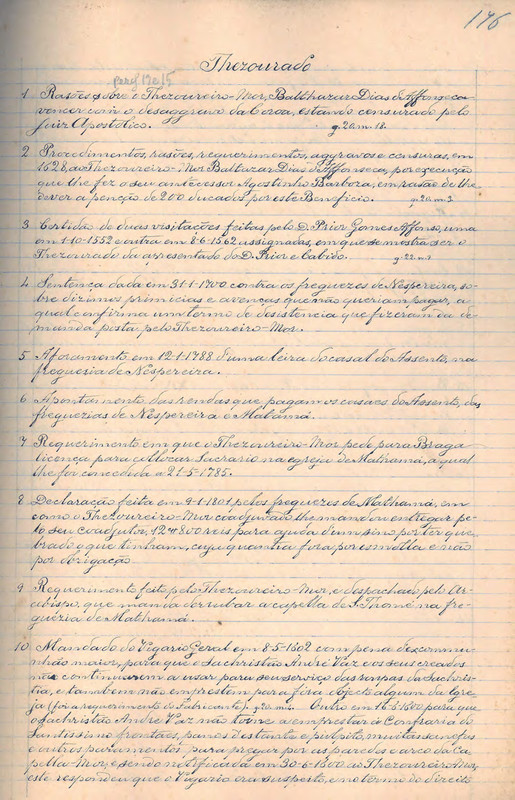 176
Thezourado
1 Rasões sobre o Thezoureiro-Mor, Balthazar Dias d'Affonseca
vencer com o desaggravo da Coroa, estando censurado pelo
Juiz Apostolico. g. 20. m. 18.
2 Procedimentos, rasões, requerimentos, aggravos e censuras, em
1628, ao Thezoureiro-Mor Baltazar Dias d'Affonseca, por execução
que lhe fez o seu antecessor Agostinho Barboza, em rasão de lhe
dever a penção de 200 ducados por este Beneficio. g. 20. m. 3
3 Certidão de duas visitações feitas pelo D. Prior Gomes Affonso, uma
em 1-10-1552 e outra em 8-6-1562 assignadas, em que se mostra ser o
Thezourado da apresentação do D. Prior e Cabido. g. 22. m. 1
4 Sentença dada em 31-1-1700 contra os freguezes de Nespereira, so-
bre dizimos primicias e avenças que não queriam pagar, a
qual confirma um termo de desistencia que fizeram da de-
manda posta pelo Thezoureiro-Mor.
5 Aforamento em 12-1-1788 d'uma leira do casal do Assento, na
freguezia de Nespereira.
6 Apontamento das rendas que pagam os casaes do Assento, das
freguezias de Nespereira e Mathamá.
7 Requerimento em que o Thezoureiro-Mor pede para Braga
licença para collocar Sacrario na egreja de Mathamá, a qual
lhe foi concedida a 21-5-1785.
8 Declaração feita em 9-1-1801 pelos freguezes de Mathamá, em
como o Thezoureiro-Mor coadjuvado lhe mandou entregar pe-
lo seu Coadjutor, 12#800 reis para ajuda d'um sino por ter que-
brado o que tinham, cuja quantia fora por esmolla e não
por obrigação.
9 Requerimento feito pelo Thezoureiro-Mor, e despachado pelo Ar-
cebispo, que manda derrubar a capella de S. Thomé na fre-
guezia de Mathamá.
10 Mandado do Vigario Geral em 8-5-1602 com pena d'excommu-
nhão maior, para que o Sachristão André Vaz e os seus creados
não continuarem a usar para seu serviço das roupas da Sachris-
tia, e tambem não emprestem para fóra objecto algum da Egre-
ja (foi a requerimento do Fabricante). g. 20. m. Outro em para que
o Sachristão André Vaz não torne a emprestar á Confraria do
Santissimo frontaes, panos d'estante e pulpito, muitas sanefas
e outros paramentos para pregar por as paredes e arco da Ca-
pella-Mor, e sendo notificada em 30-6-1600 ao Thezoureiro-Mor,
este respondeu que o Vigario era suspeito, e no termo de direito